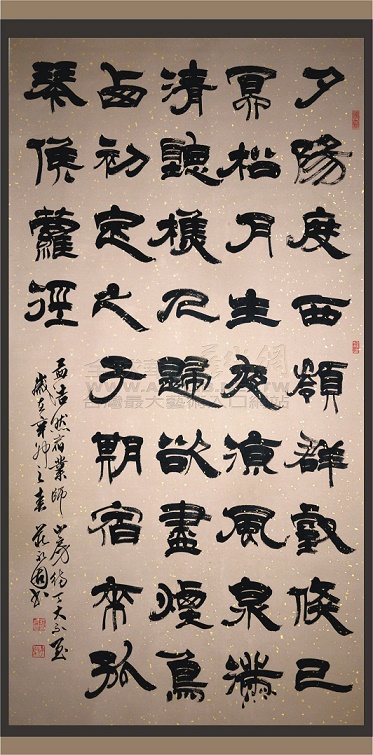 夕陽度西嶺群壑倏已
冥松月生夜凉風泉滿
清聽樵人歸欲盡煙鳥
初定之子期宿來孤
琴候蘿徑
孟浩然宿業師山房待丁大不至
歲在辛卯之春
台灣最大藝術入口網站